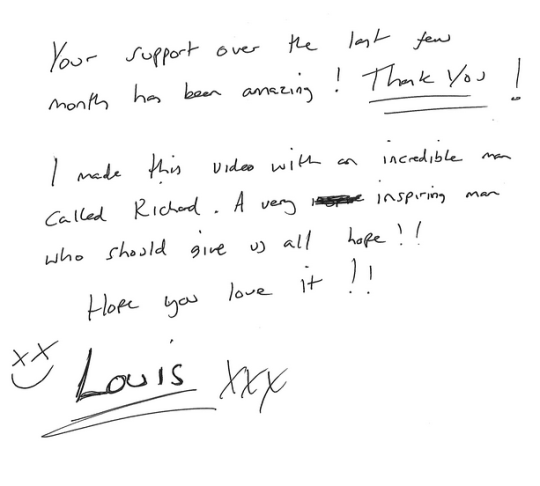 Your support over the last few
month has been amazing! Thank You!
I made this video with an incredible man
Called Richard. A very inspiring man
who should give us all hope!!
Hope you love it!!
Louis xxx